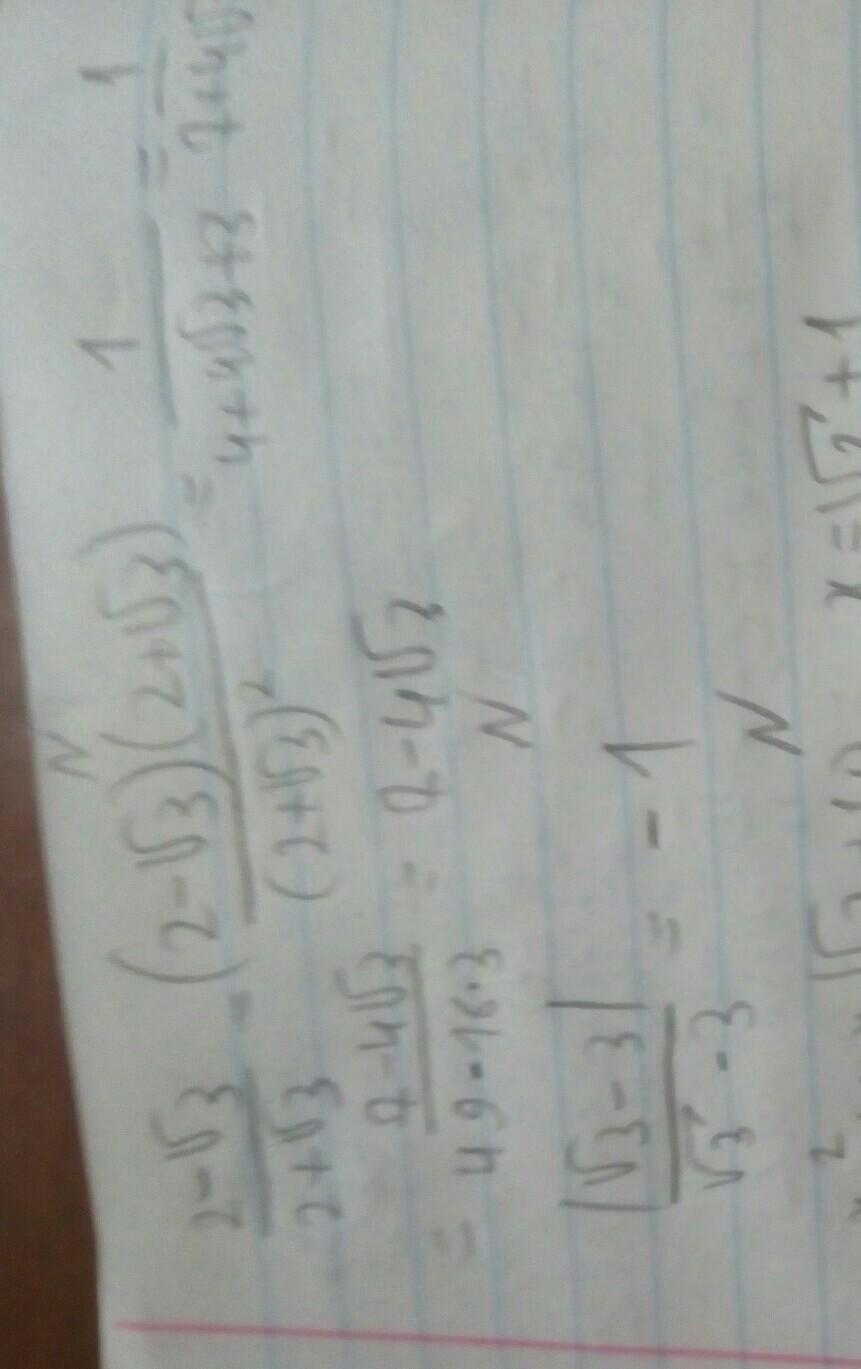 N
2-√3/2+√3 = (2-√3)(2+√3)/(2+√3)² = 1/4+4√3+3 = 1/7+4√3
= 7-4√3/49-16·3 = 7-4√3
N
|√3-3|/√3-3 = -1
N
x=√2+1